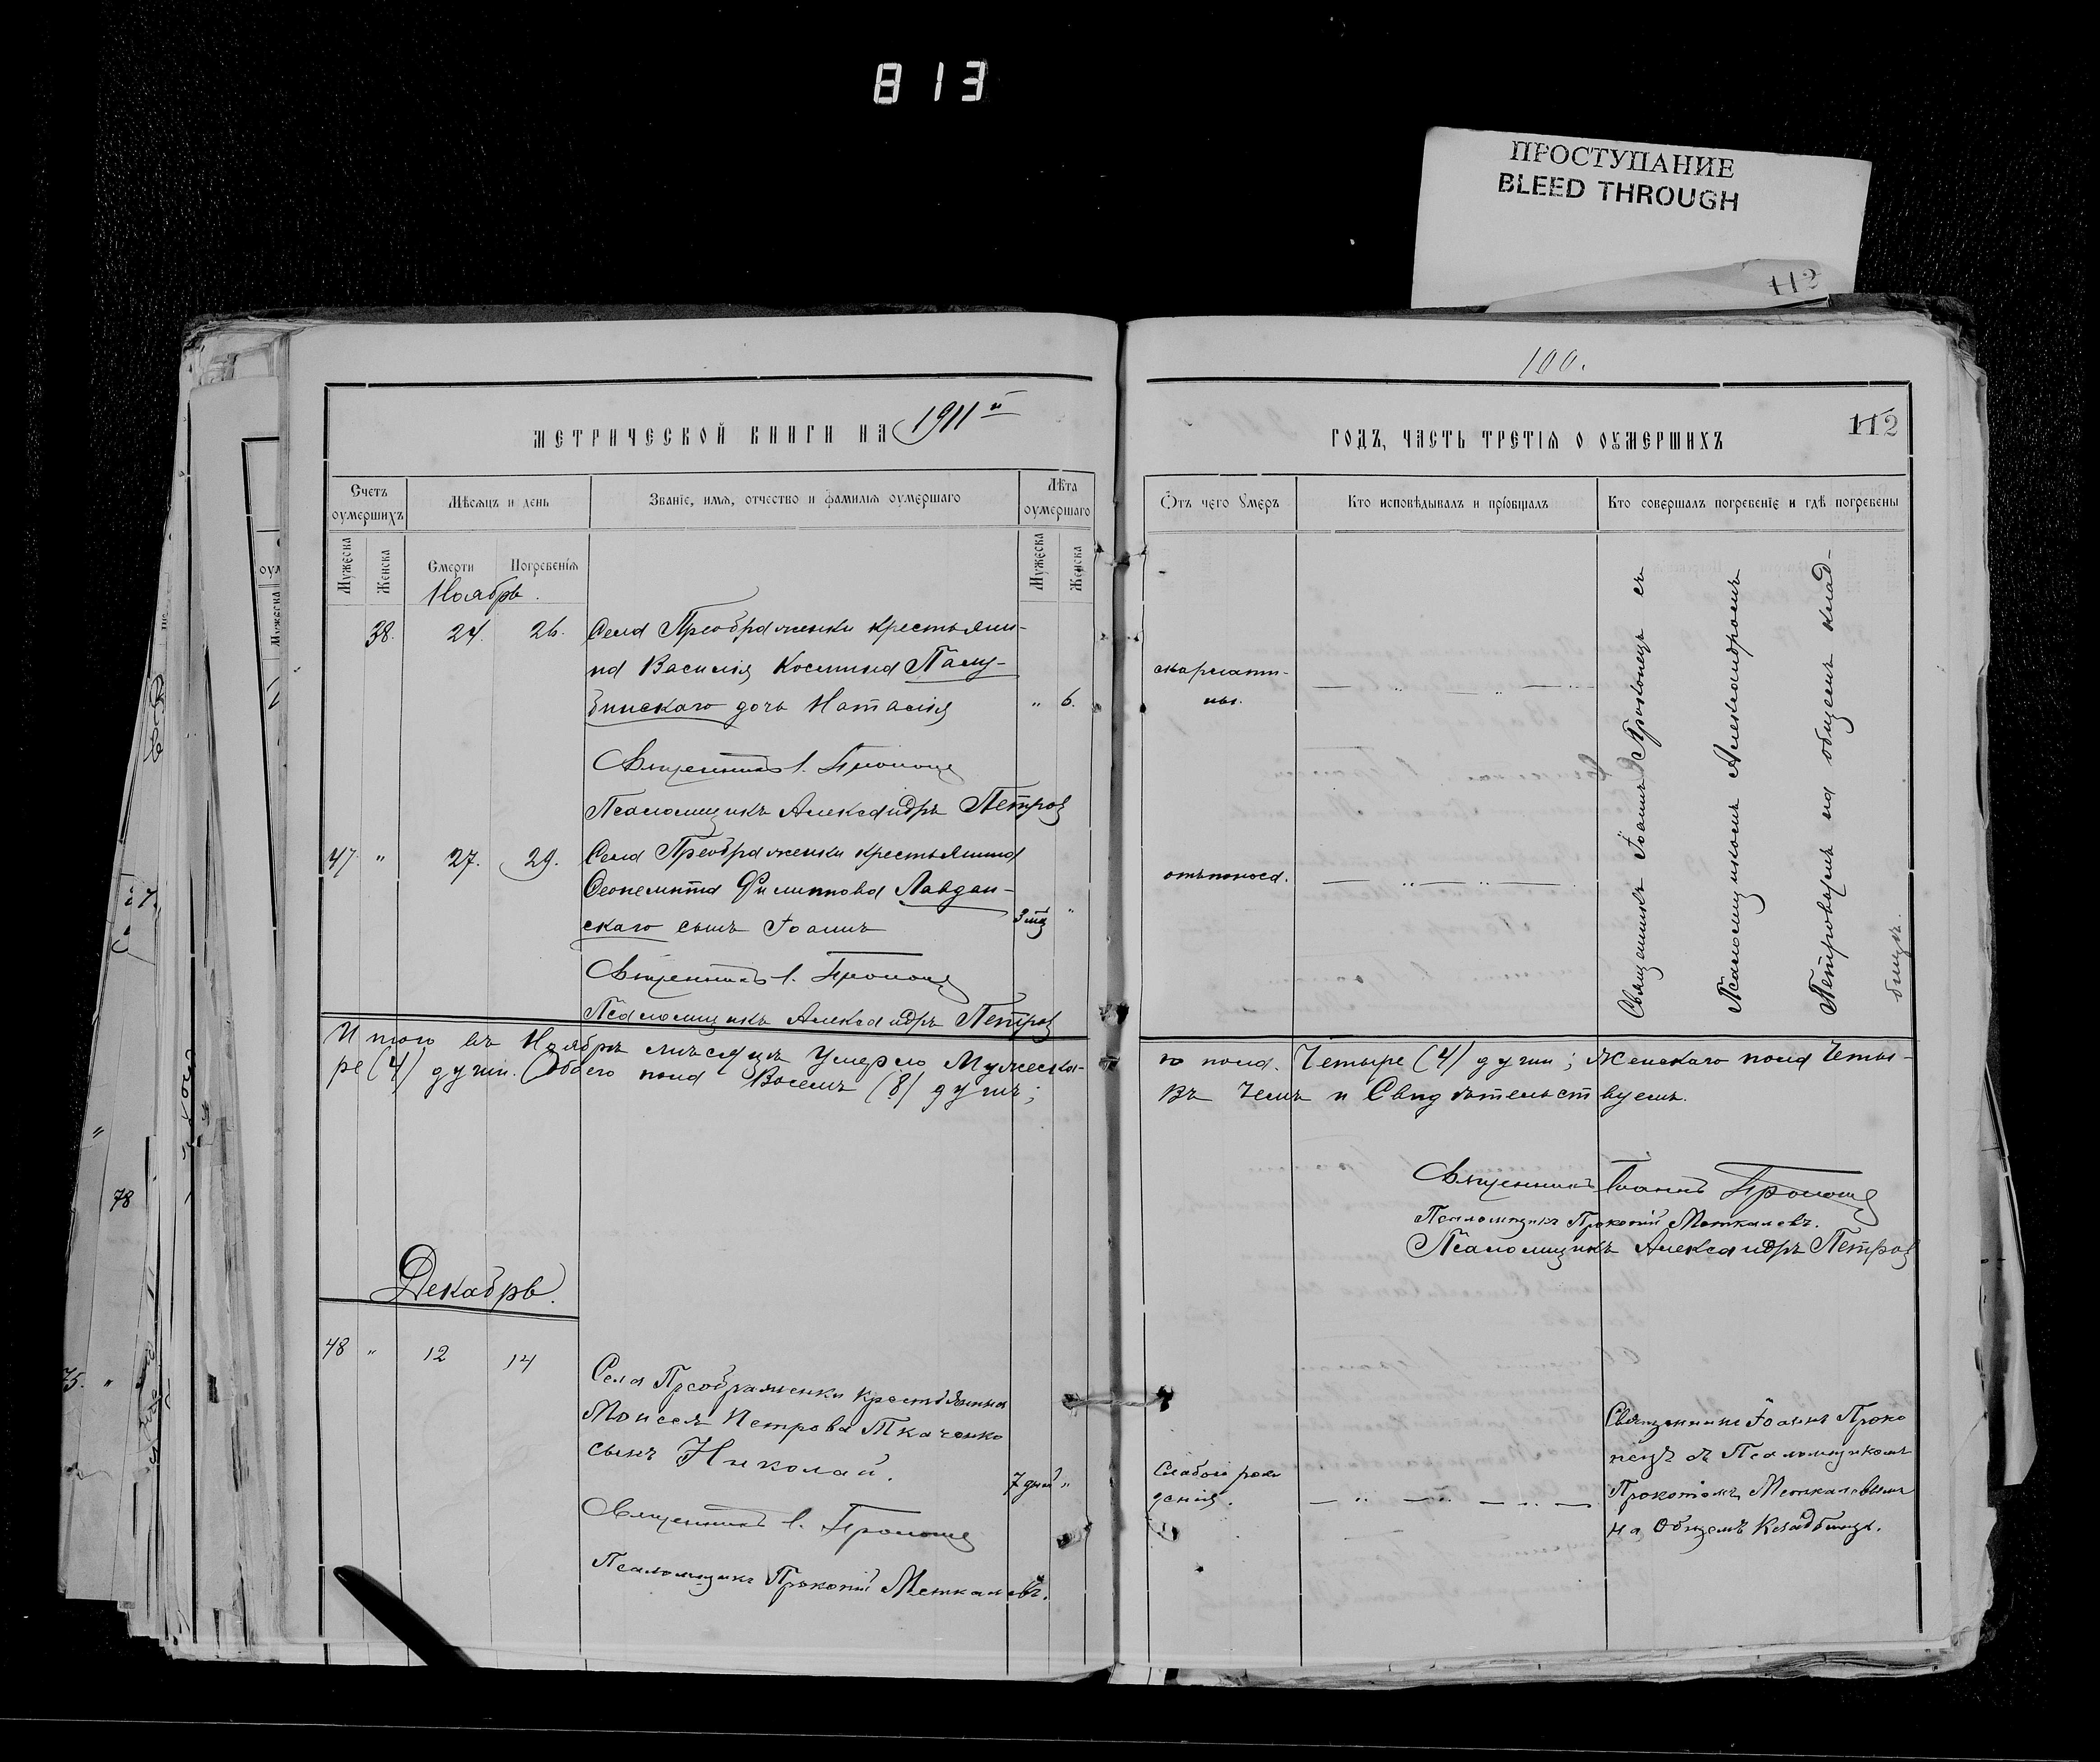 813
ПРОСТУПАНИЕ
BLEED THROUGH
112
100.
МЕТРИЧЕСКОЙ КНИГИ НА 1911й
ГОДЪ, ЧАСТЬ ТРЕТІЯ О ОУМЕРШИХЪ
112
Счетъ оумершихъ
Мѣсяцъ и день
Званіе, имя, отчество и фамилія оумершаго
Лѣта оумершаго
Отъ чего умеръ
Кто исповѣдывалъ и пріобщалъ
Кто совершалъ погребеніе и гдѣ погребены
Мужеска
Женска
Смерти
Погребенія
Мужеска
Женска
Ноябрь.
38. 24. 26. Села Преображенки крестьяни-
на Василія Космина
бинскаго дочь Наталія " 6.
скарлати-
ны.
Священникъ І.
Псаломщикъ Александръ Петровъ
47 " 27. 29. Села Преображенки крестьянина
Филиппова Лавдан-
скаго сынъ Іоаннъ "
отъ поноса.
Священникъ І.
Псаломщикъ Александръ Петровъ
Священникъ Іоаннъ Прокопецъ съ
Псаломщикомъ Александромъ
Петровымъ на общемъ клад-
бищѣ.
Итого въ Ноябрѣ мѣсяцѣ умерло Мужеска-
го пола. Четыре (4) души; Женскаго пола Четы-
ре (4) души. Обоего пола Восемь (8) душъ;
Въ чемъ и Свидѣтельствуемъ.
Священникъ Іоаннъ
Псаломщикъ Прокопій Меткалевъ.
Псаломщикъ Александръ Петровъ
Декабрь.
48 " 12 14
Села Преображенки крестьянина
Моисея Петрова Ткаченко
сынъ Николай.
7 дней "
Слабого рож
денія.
Священникъ Іоаннъ Проко
пецъ съ Псаломщикомъ
Прокопіемъ Меткалевымъ
на Общемъ Кладбищѣ.
Священникъ І.
Псаломщикъ Прокопій Меткалевъ.
78
75. "